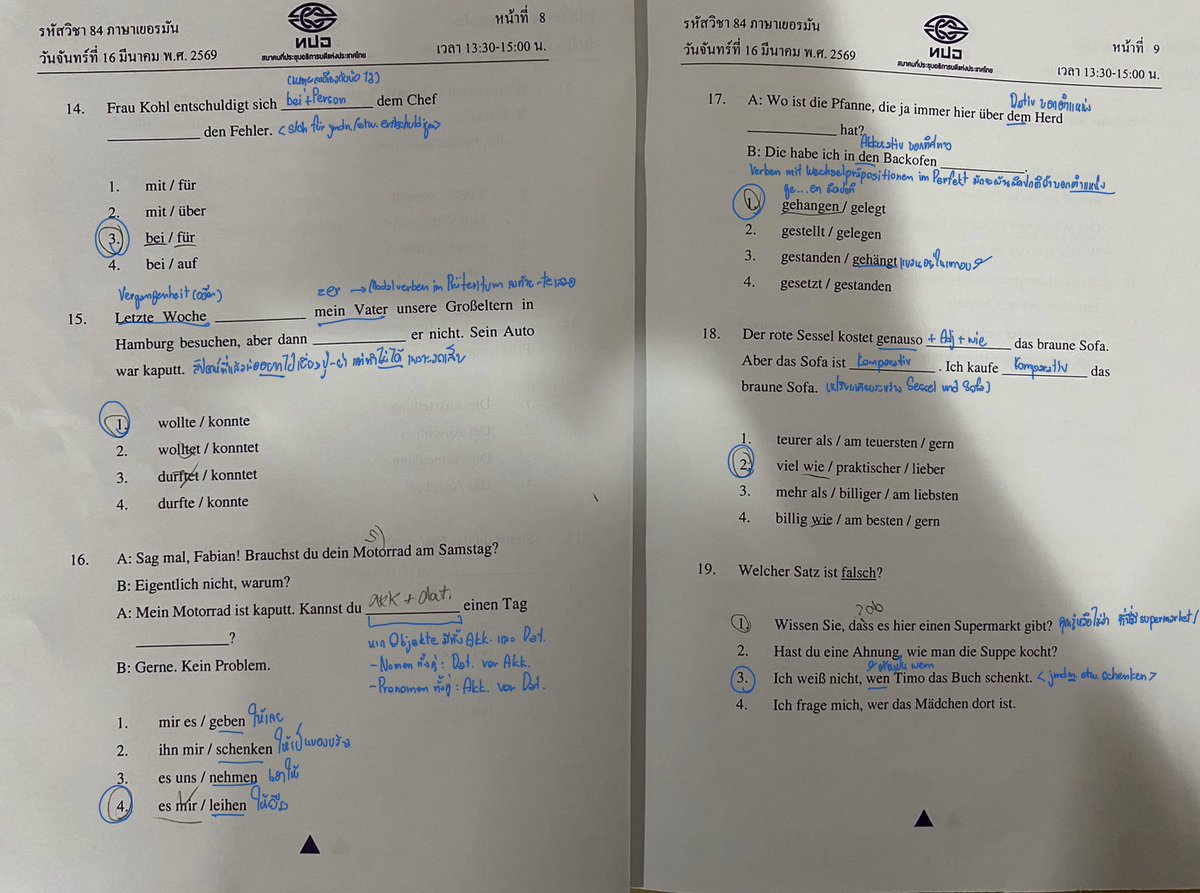 รหัสวิชา 84 ภาษาเยอรมัน
วันจันทร์ที่ 16 มีนาคม พ.ศ. 2569
ทปอ
สมาคมที่ประชุมอธิการบดีแห่งประเทศไทย
หน้าที่ 8
เวลา 13:30-15:00 น.
14. Frau Kohl entschuldigt sich bei+Person dem Chef
den Fehler. <sich für jmdn./etw. entschuldigen>
1. mit / für
2. mit / über
3. bei / für
4. bei / auf
Vergangenheit (อดีต)
→ Modalverben im Präteritum ลงท้าย -te เสมอ
15. Letzte Woche ____ mein Vater unsere Großeltern in
Hamburg besuchen, aber dann ____ er nicht. Sein Auto
war kaputt.
1. wollte / konnte
2. wolltet / konntet
3. durftet / konntet
4. durfte / konnte
16. A: Sag mal, Fabian! Brauchst du dein Motorrad am Samstag?
B: Eigentlich nicht, warum?
A: Mein Motorrad ist kaputt. Kannst du akk + dat. einen Tag
____?
หาก Objekte มีทั้ง Akk. และ Dat.
B: Gerne. Kein Problem.
- Nomen ทั้งคู่ : Dat. vor Akk.
- Pronomen ทั้งคู่ : Akk. vor Dat.
1. mir es / geben ให้เลย
2. ihn mir / schenken ให้เป็นของขวัญ
3. es uns / nehmen เอาให้
4. es mir / leihen ให้ยืม
รหัสวิชา 84 ภาษาเยอรมัน
วันจันทร์ที่ 16 มีนาคม พ.ศ. 2569
ทปอ
สมาคมที่ประชุมอธิการบดีแห่งประเทศไทย
หน้าที่ 9
เวลา 13:30-15:00 น.
Dativ บอกตำแหน่ง
17. A: Wo ist die Pfanne, die ja immer hier über dem Herd
____ hat?
Akkusativ บอกทิศทาง
B: Die habe ich in den Backofen ____.
Verben mit Wechselpräpositionen im Perfekt
ge...en
1. gehangen / gelegt
2. gestellt / gelegen
3. gestanden / gehängt
4. gesetzt / gestanden
18. Der rote Sessel kostet genauso + Adj + wie das braune Sofa.
Aber das Sofa ist Komparativ. Ich kaufe Komparativ das
braune Sofa. (เปรียบเทียบระหว่าง Sessel und Sofa)
1. teurer als / am teuersten / gern
2. viel wie / praktischer / lieber
3. mehr als / billiger / am liebsten
4. billig wie / am besten / gern
19. Welcher Satz ist falsch?
? ob
1. Wissen Sie, dass es hier einen Supermarkt gibt?
2. Hast du eine Ahnung, wie man die Suppe kocht?
wem
3. Ich weiß nicht, wen Timo das Buch schenkt. <jmdm. etw. schenken>
4. Ich frage mich, wer das Mädchen dort ist.